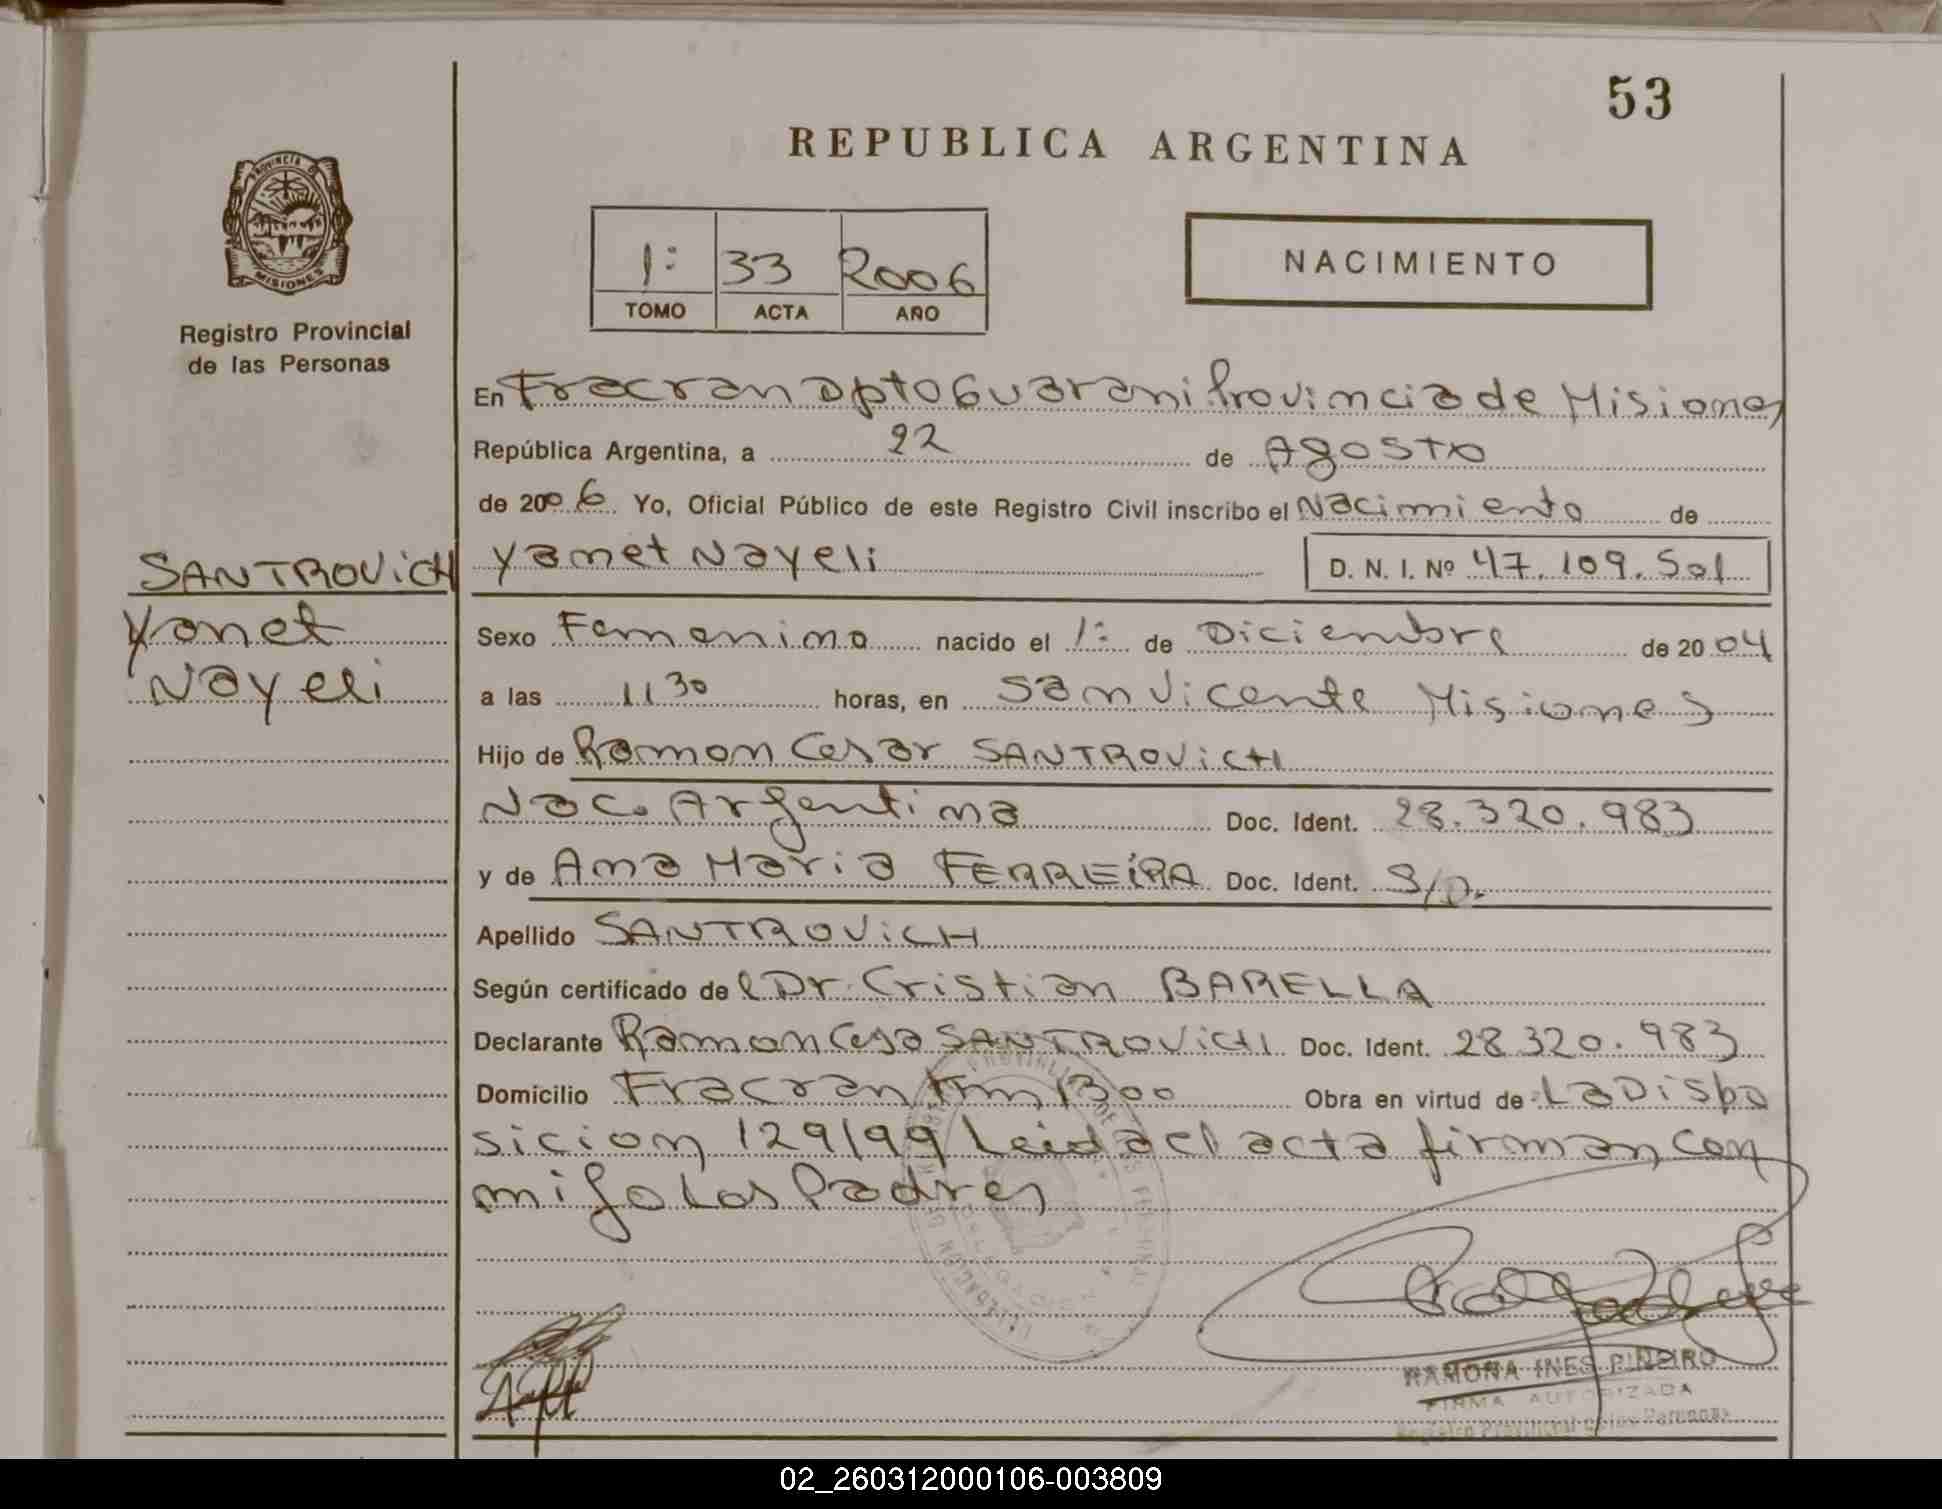 53
REPUBLICA ARGENTINA
PROVINCIA D
MISIONES
Registro Provincial
de las Personas
1º 33 2006
TOMO ACTA AÑO
NACIMIENTO
En Fracran Dpto Guarani Provincia de Misiones
República Argentina, a 22 de Agosto
de 2006 Yo, Oficial Público de este Registro Civil inscribo el Nacimiento de
SANTROVICH
Yanet
Nayeli
Yanet Nayeli D. N. I. Nº 47.109.501
Sexo Femenino nacido el 1º de Diciembre de 2004
a las 11 30 horas, en San Vicente Misiones
Hijo de Ramon Cesar SANTROVICH
Nac. Argentina Doc. Ident. 28.320.983
y de Ana Maria FERREIRA Doc. Ident. S/D.
Apellido SANTROVICH
Según certificado del Dr. Cristian BARELLA
Declarante Ramon Cesa SANTROVICH Doc. Ident. 28.320.983
Domicilio Fracran Km 1300 Obra en virtud de La Dispo
sicion 129/99 Leida el acta firman con
migo Los Padres
RAMONA INES PIÑEIRO
FIRMA AUTORIZADA
Registro Provincial de las Personas
02_260312000106-003809